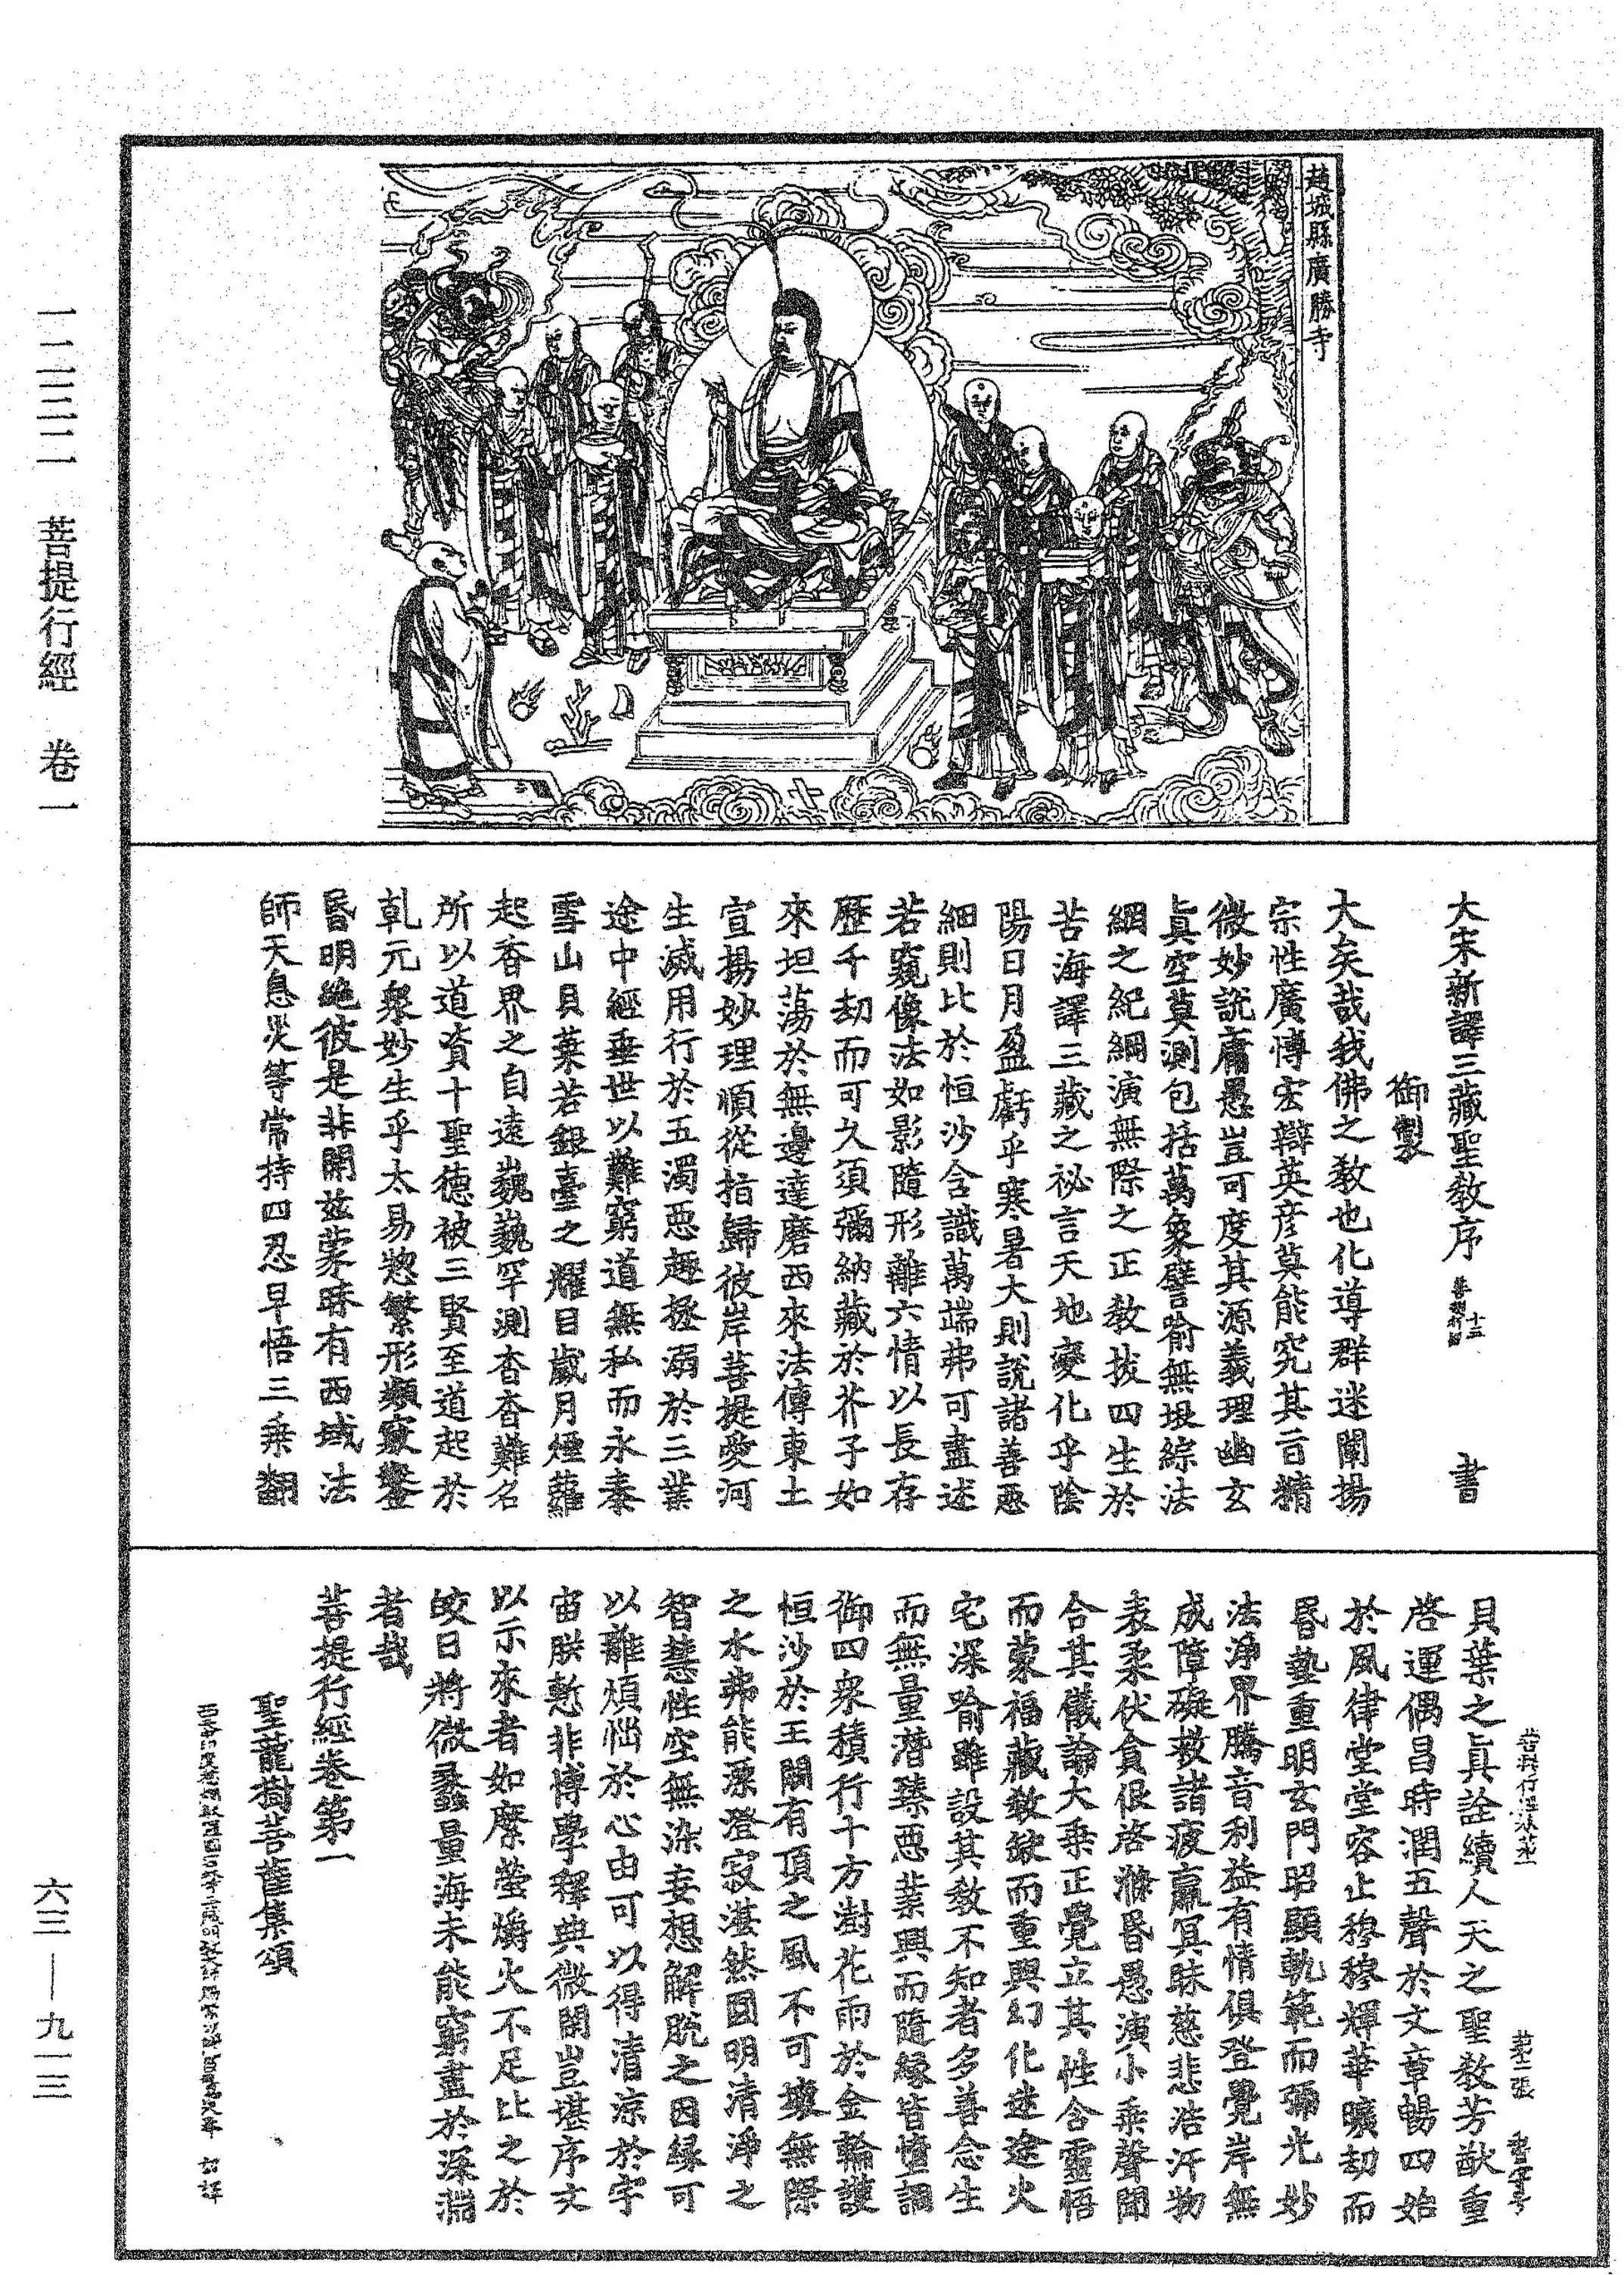 趙城縣廣勝寺
大宋新譯三藏聖教序
書
御製
大矣哉我佛之教也化導群迷闡揚
宗性廣博宏辯英彦莫能究其旨精
微妙説庸愚豈可度其源義理幽玄
真空莫測包括萬象譬喻無垠綜法
網之紀綱演無際之正教拔四生於
苦海譯三藏之祕言天地變化乎陰
陽日月盈虧乎寒暑大則説諸善惡
細則比於恒沙含識萬端弗可盡述
若窺像法如影隨形離六情以長存
歷千劫而可久須彌納藏於芥子如
來坦蕩於無邊達磨西來法傳東土
宣揚妙理順從指歸彼岸菩提愛河
生滅用行於五濁惡趣拯溺於三業
途中經垂世以難窮道無私而永泰
雪山貝葉若銀臺之耀目歲月煙蘿
起香界之自遠巍巍罕測杳杳難名
所以道資十聖德被三賢至道起於
乹元衆妙生乎太易惣繁形類竅鑿
昬明絶彼是非開兹蒙昧有西域法
師天息災等常持四忍早悟三乘翻
貝葉之真詮續人天之聖教芳猷重
啓運偶昌時潤五聲於文章暢四始
於風律堂堂容止穆穆輝華曠劫而
昬墊重明玄門昭顯軌範而彌光妙
法淨界騰音利益有情俱登覺岸無
成障礙救諸疲羸冥昧慈悲浩汗物
表柔伏貪佷啓滌昬愚演小乘聲聞
合其儀論大乘正覺立其性含靈悟
而蒙福藏教缺而重興幻化迷途火
宅深喻雖設其教不知者多善念生
而無量潛臻惡業興而隨緣皆墮調
御四衆積行十方澍花雨於金輪護
恒沙於王闕有頂之風不可壞無際
之水弗能漂澄寂湛然圓明清淨之
智慧性空無染妄想解脱之因緣可
以離煩惱於心田可以得清涼於宇
宙朕慙非博學釋典微閑豈堪序文
以示來者如縻螢爝火不足比之於
皎日將微蠡量海未能窮盡於深淵
者哉
菩提行經卷第一
聖龍樹菩薩集頌
一一三三二 菩提行經 卷一
六三——九一三